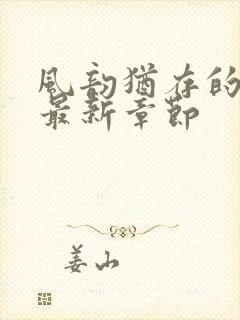 風韵猶存的
最新章節
姜山